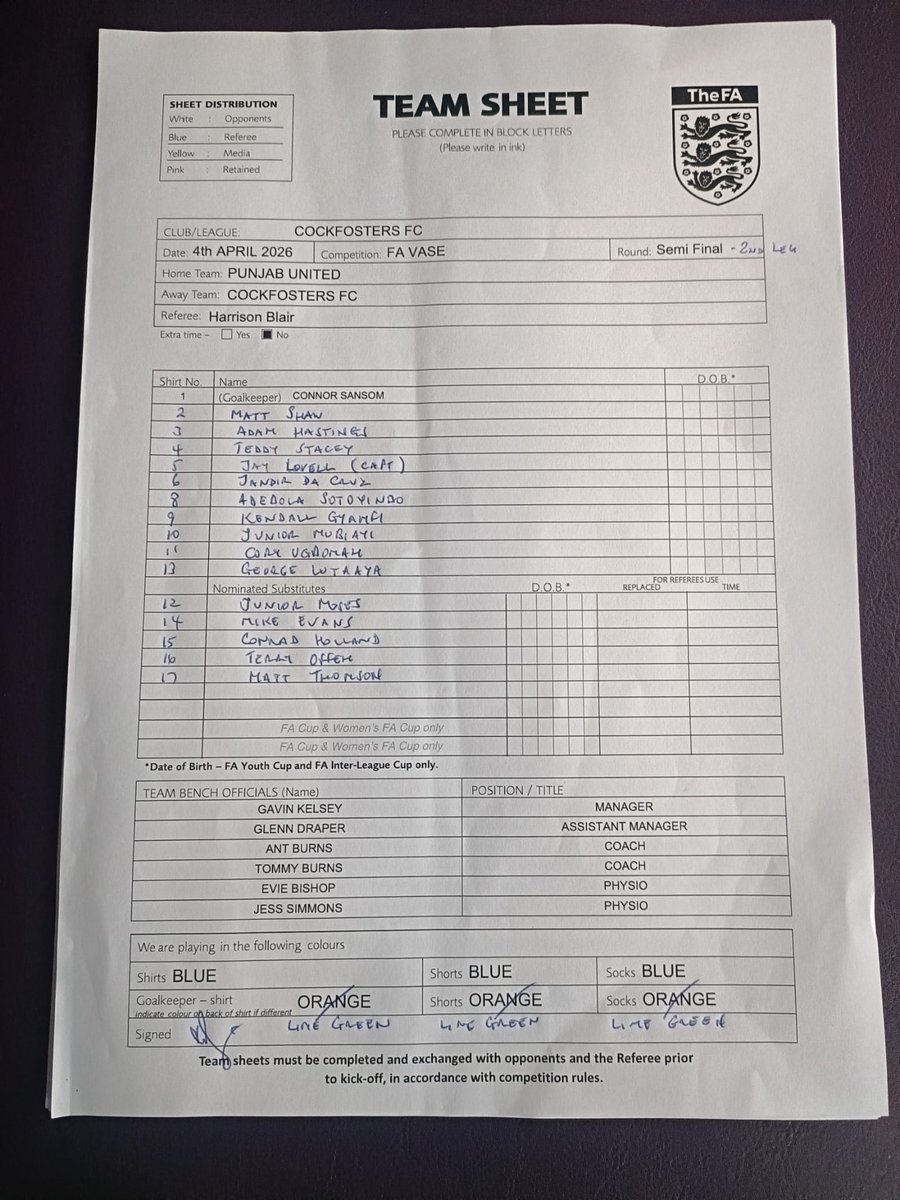 SHEET DISTRIBUTION
White : Opponents
Blue : Referee
Yellow : Media
Pink : Retained
TEAM SHEET
PLEASE COMPLETE IN BLOCK LETTERS
(Please write in ink)
The FA
CLUB/LEAGUE: COCKFOSTERS FC
Date: 4th APRIL 2026 Competition: FA VASE Round: Semi Final - 2ND LEG
Home Team: PUNJAB UNITED
Away Team: COCKFOSTERS FC
Referee: Harrison Blair
Extra time – Yes No
Shirt No. Name D.O.B.*
1 (Goalkeeper) CONNOR SANSOM
2 MATT SHAW
3 ADAM HASTINGS
4 TEDDY STACEY
5 JAY LOVELL (CAPT)
6 JANDIR DA CRUZ
8 ADEBOLA SOTOYINBO
9 KENDALL GYAMFI
10 JUNIOR MUBIAYI
11 CORY UGBOMAH
13 GEORGE LUTAAYA
Nominated Substitutes D.O.B.* FOR REFEREES USE
REPLACED TIME
12 JUNIOR
14 MIKE EVANS
15 CONRAD HOLLAND
16 TERRY OFFEH
17 MATT THOMSON
FA Cup & Women's FA Cup only
FA Cup & Women's FA Cup only
*Date of Birth – FA Youth Cup and FA Inter-League Cup only.
TEAM BENCH OFFICIALS (Name) POSITION / TITLE
GAVIN KELSEY MANAGER
GLENN DRAPER ASSISTANT MANAGER
ANT BURNS COACH
TOMMY BURNS COACH
EVIE BISHOP PHYSIO
JESS SIMMONS PHYSIO
We are playing in the following colours
Shirts BLUE Shorts BLUE Socks BLUE
Goalkeeper – shirt ORANGE Shorts ORANGE Socks ORANGE
indicate colour on back of shirt if different
Signed LIME GREEN LIME GREEN LIME GREEN
Team sheets must be completed and exchanged with opponents and the Referee prior
to kick-off, in accordance with competition rules.